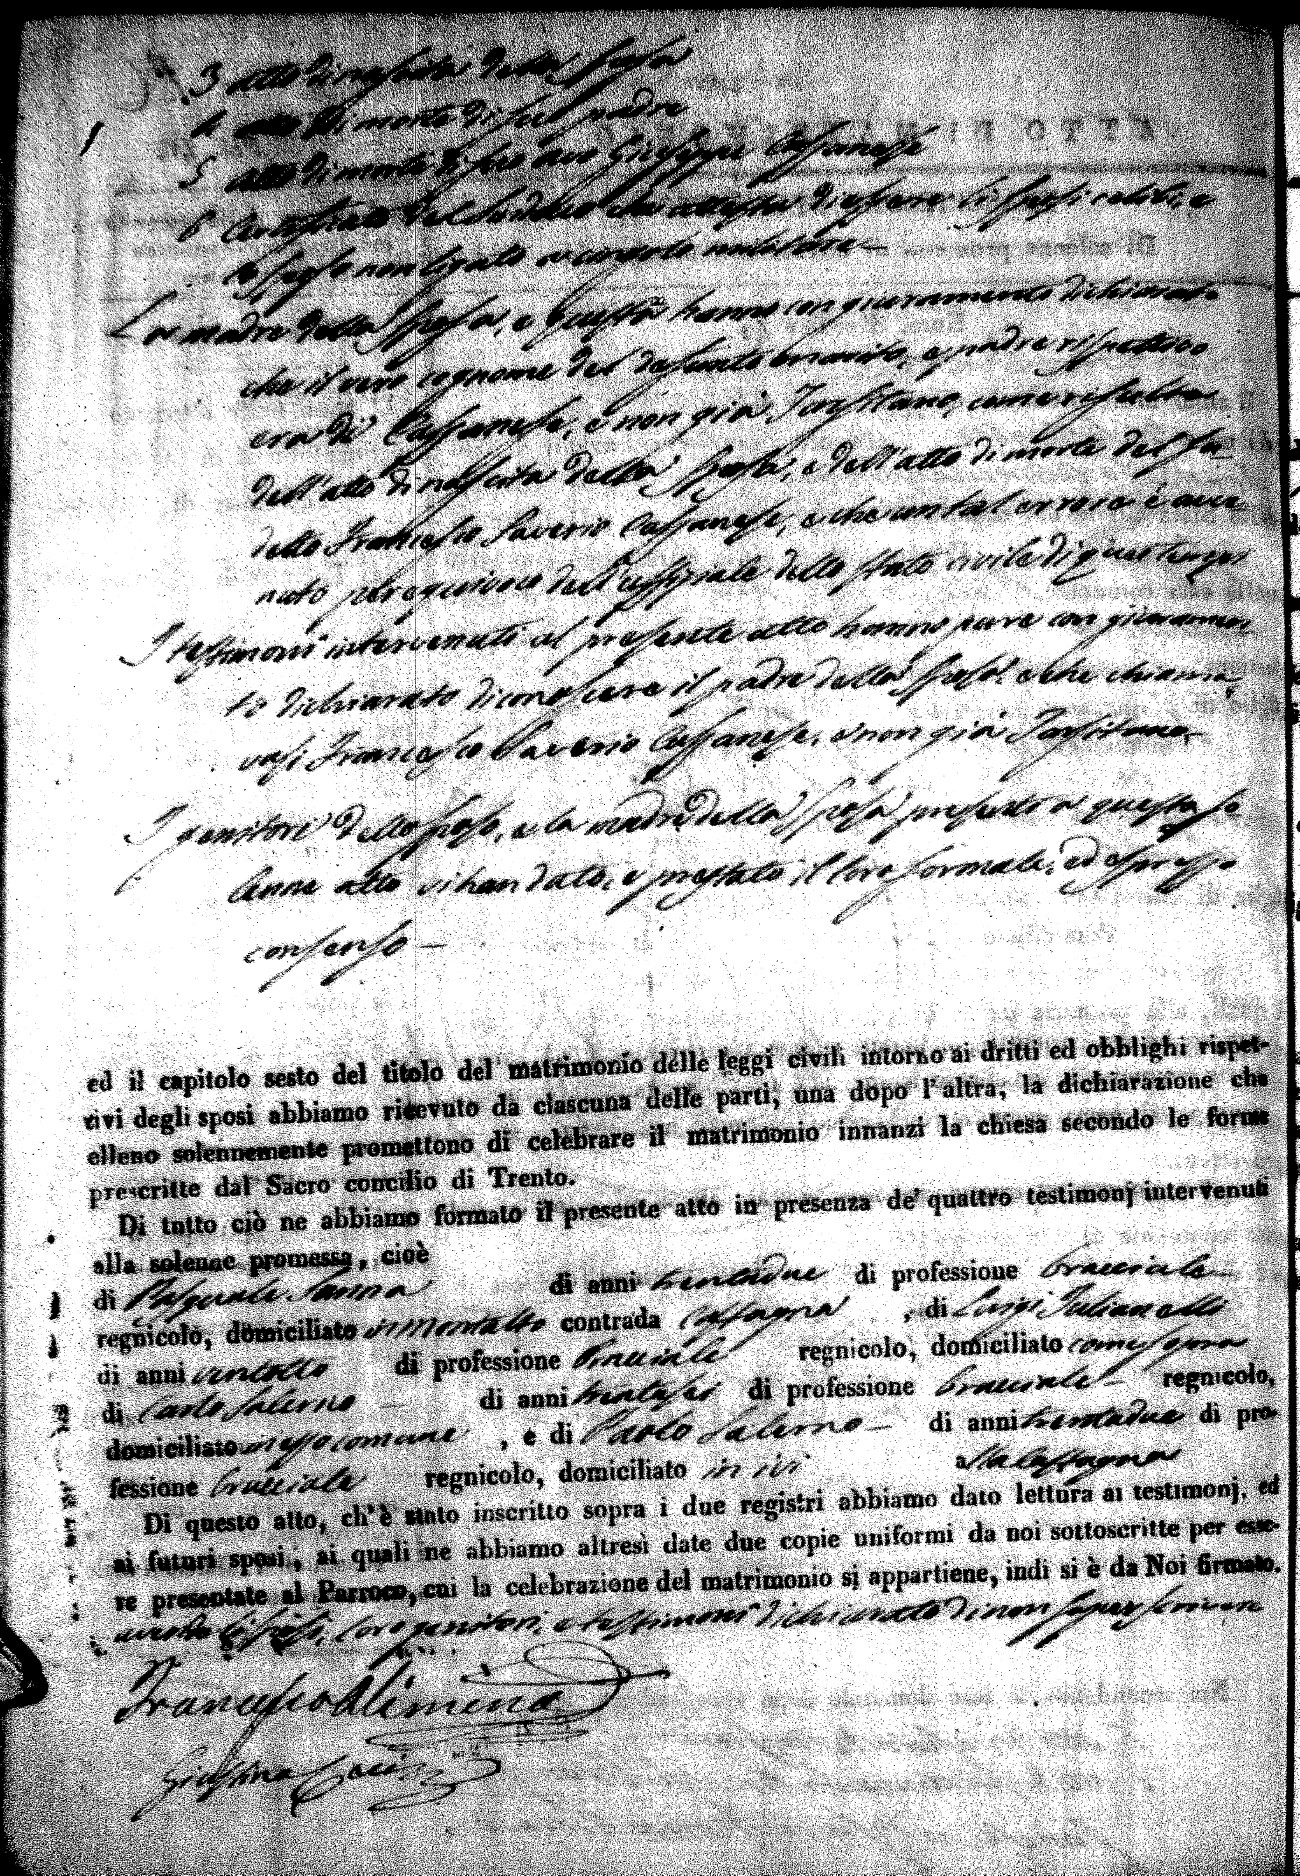 3 atto di nascita della Sposa
4 atto di morte di suo padre
5 atto di morte di suo avo Giuseppe Cassanese
6 Certificato del Sindaco che attesta di essere li sposi celibi, e
lo sposo non legato a vincolo militare —
La madre della Sposa, e questa hanno con giuramento dichiarato
che il vero cognome del defunto marito, e padre rispettivo
era di Cassanese, e non già Tarsitano, come risulta
dell'atto di nascita della Sposa, e dell'atto di morte del su-
detto Francesco Saverio Cassanese, e che un tal errore è avve
nuto per equivoco dell'uffiziale dello stato civile di quei tempi
I testimoni intervenuti al presente atto hanno pure con giuramen
to dichiarato di conoscere il padre della Sposa, e che chiama
vasi Francesco Saverio Cassanese, e non già Tarsitano —
I genitori dello sposo, e la madre della Sposa presenti a questo so
lenne atto vi han dato, e prestato il loro formale, ed espresso
consenso —
ed il capitolo sesto del titolo del matrimonio delle leggi civili intorno ai dritti ed obblighi rispet-
tivi degli sposi abbiamo ricevuto da ciascuna delle parti, una dopo l'altra, la dichiarazione che
elleno solennemente promettono di celebrare il matrimonio innanzi la chiesa secondo le forme
prescritte dal Sacro concilio di Trento.
Di tutto ciò ne abbiamo formato il presente atto in presenza de' quattro testimonj intervenuti
alla solenne promessa, cioè
di Pasquale Sanna di anni trentadue di professione bracciale —
regnicolo, domiciliato in Montalto contrada Castagna , di Luigi Iulianello
di anni ventotto di professione Bracciale regnicolo, domiciliato come sopra
di Carlo Salerno — di anni trentasei di professione bracciale — regnicolo,
domiciliato in esso comune , e di Paolo Salerno — di anni trentadue di pro-
fessione bracciale regnicolo, domiciliato in ivi alla Castagna
Di questo atto, ch'è stato inscritto sopra i due registri abbiamo dato lettura ai testimonj, ed
ai futuri sposi, ai quali ne abbiamo altresì date due copie uniformi da noi sottoscritte per esse-
re presentate al Parroco, cui la celebrazione del matrimonio si appartiene, indi si è da Noi firmato.
avendo li sposi, loro genitori, e testimoni dichiarato di non saper scrivere
Francesco Alimena